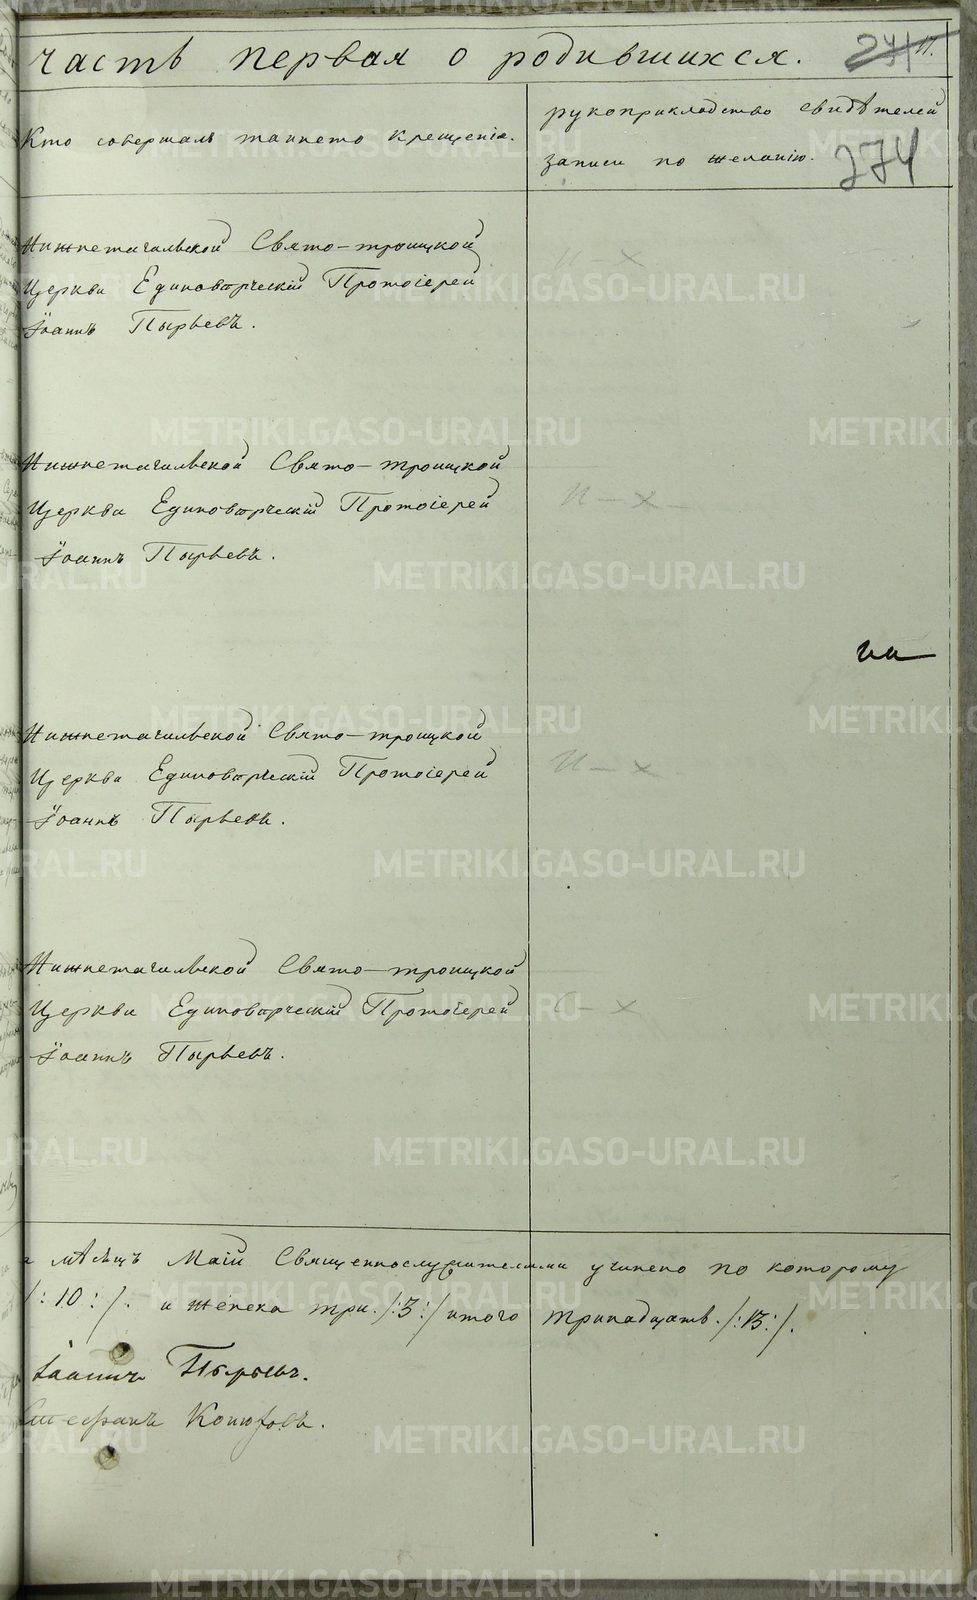 часть первая о родившихся.
241 17.
Кто совершалъ таинсто Крещенія.
рукоприкладство свидѣтелей
записи по желанію.
274
Нижнетагильской Свято-троицкой
Церкви Единовѣрческій Протоіерей
Іоаннъ Пырьевъ.
Нижнетагильской Свято-троицкой
Церкви Единовѣрческій Протоіерей
Іоаннъ Пырьевъ.
Нижнетагильской Свято-троицкой
Церкви Единовѣрческій Протоіерей
Іоаннъ Пырьевъ.
Нижнетагильской Свято-троицкой
Церкви Единовѣрческій Протоіерей
Іоаннъ Пырьевъ.
мѣсяцъ Маій Священнослужителями учинено по которому
/:10:/. и женска три./:3:/ итого тринадцать./:13:/.
Іоаннъ Пырьевъ.
Стефанъ Конюховъ.
METRIKI.GASO-URAL.RU